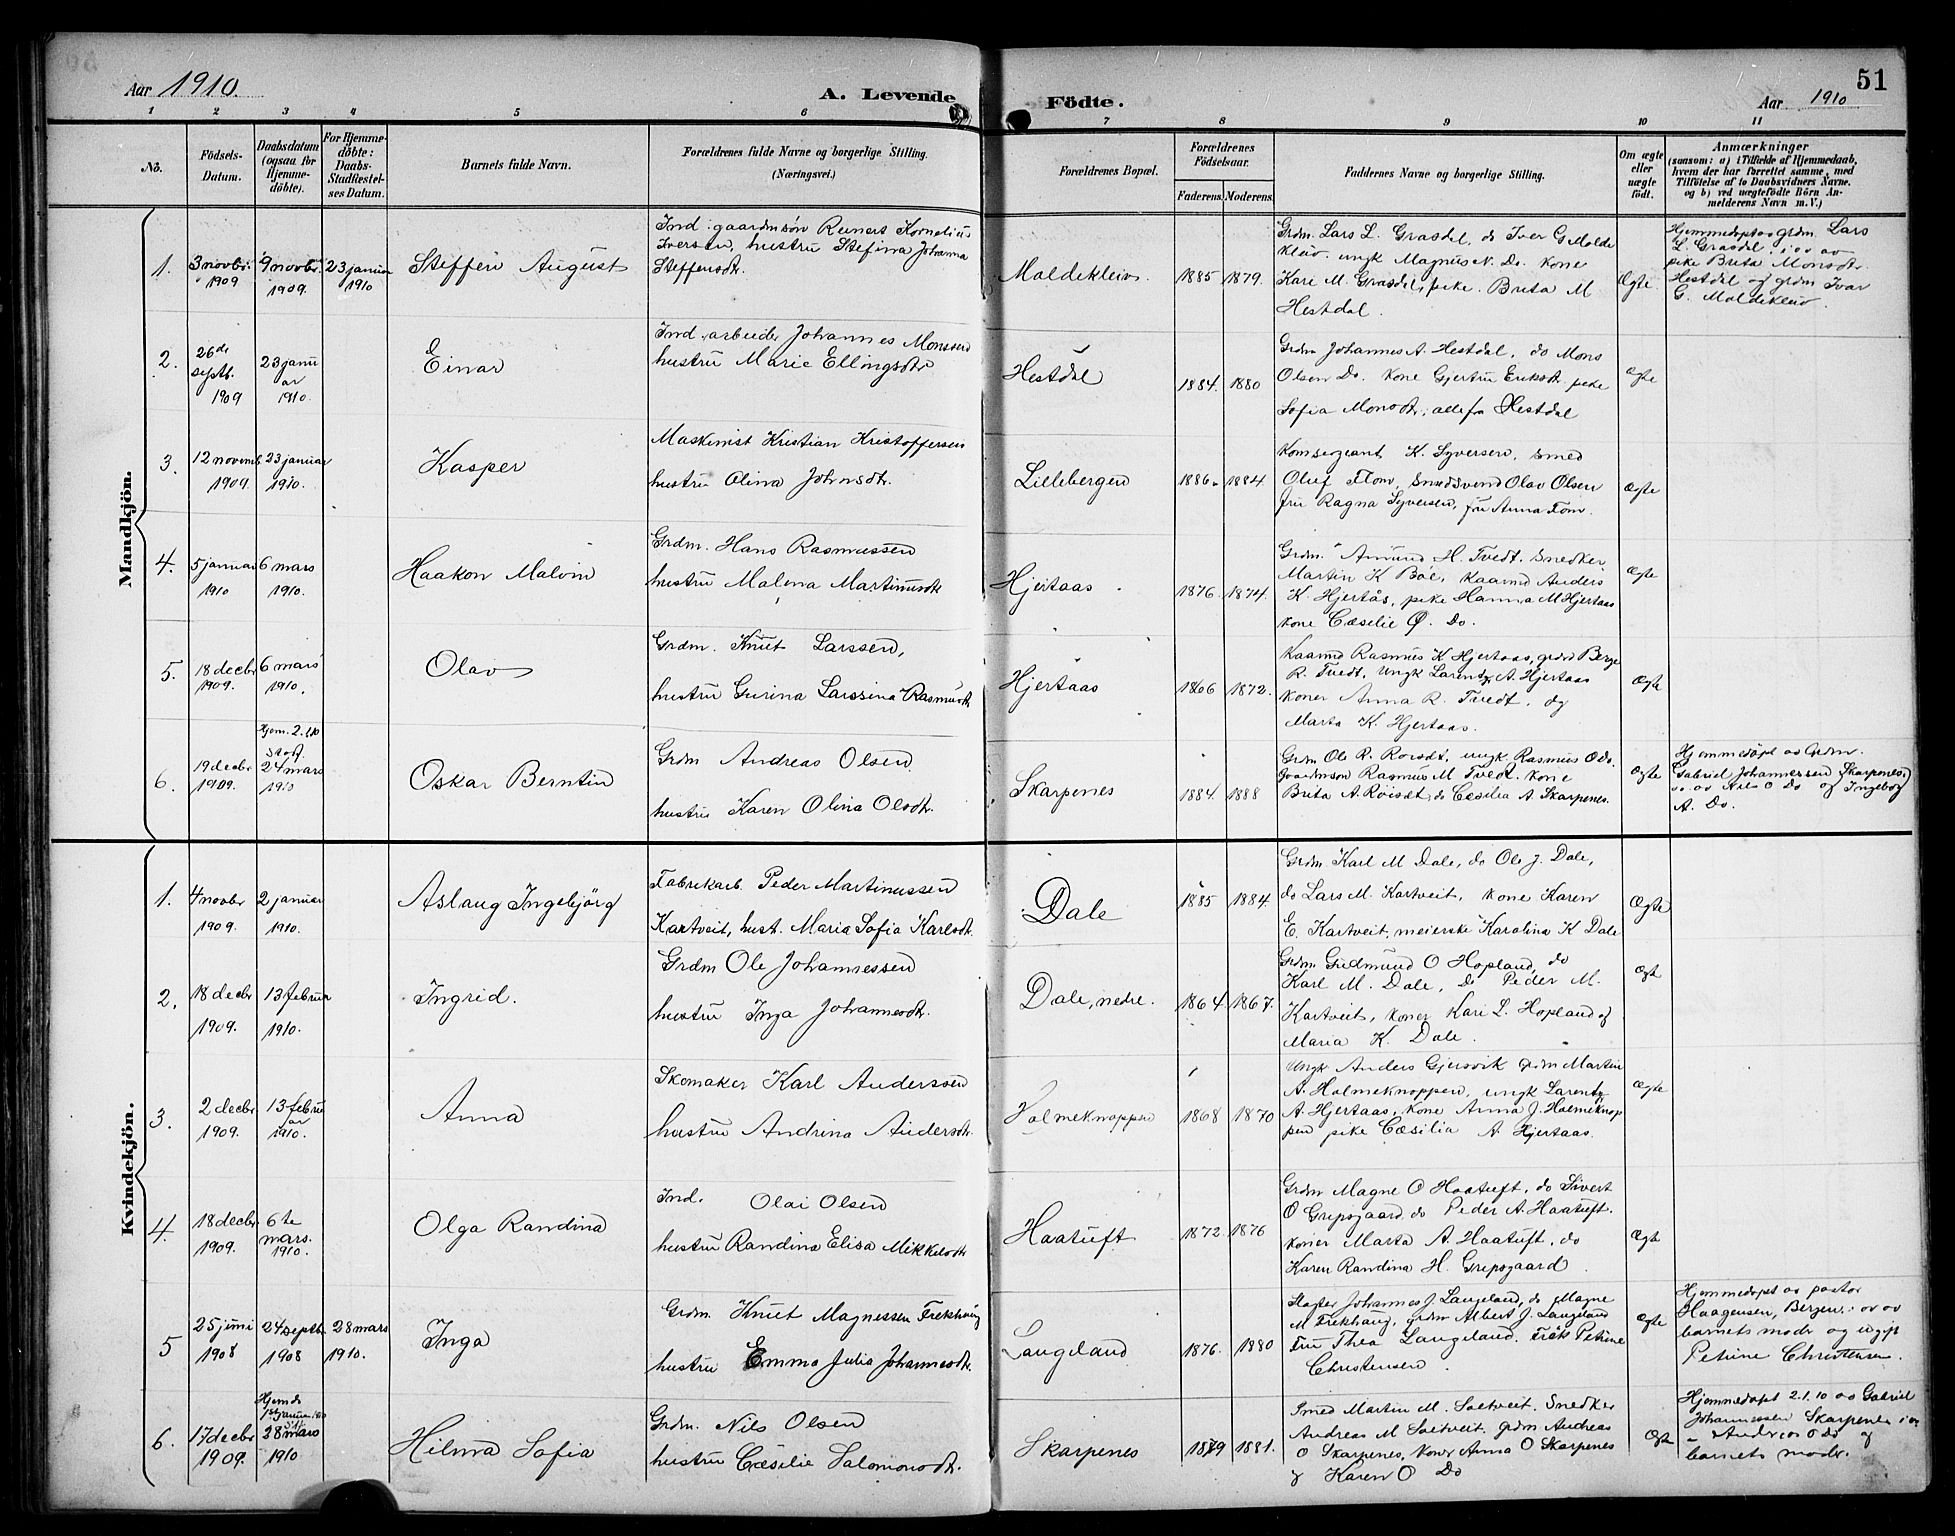 Aar 1910.
A. Levende
Födte.
Aar 1910
51
1 2 3 4 5 6 7 8 9 10 11
No.
Födsels-
Datum.
Daabsdatum
(ogsaa for
Hjemme-
döbte).
For Hjemme-
döbte:
Daabs-
Stadfæstel-
ses Datum.
Barnets fulde Navn.
Forældrenes fulde Navne og borgerlige Stilling.
(Næringsvei.)
Forældrenes Bopæl.
Forældrenes
Födselsaar.
Faderens. Moderens.
Faddernes Navne og borgerlige Stilling.
Om ægte
eller
uægte
født.
Anmærkninger
(saasom: a) i Tilfælde af Hjemmedaab,
hvem der har forrettet samme, med
Tilföielse af to Daabsvidners Navne.
og b) ved uægtefödte Börn An-
melderens Navn m.V.)
Mandkjön.
1.
3 novbr.
1909
9 novbr.
1909.
23 januar
1910
Steffen August
Ind. gaardmsøn Reinert Kornelius
Iversen, hustru Stefina Johanna
Steffensdtr.
Moldekleiv.
1885 1879.
Grdm. Lars L. Grasdal, do Iver G Molde
kleiv. ungk Magnus N. Do. Kone
Kari M. Grasdal, pike. Brita M
Hestdal.
Ægte.
Hjemmedøpt av grdm. Lars
L. Grasdal i ov av
pike Brita Monsdtr.
Hestdal og grdm Ivar
G. Moldekleiv.
2.
26de
septb.
1909
23 janu
ar
1910.
Einar
Ind. arbeider Johannes Monssen
hustru Marie Ellingsdtr
Hestdal
1884. 1880
Grdm Johannes A. Hestdal, do Mons
Olsen Do. Kone Gjertru Eriksdtr pike
Sofia Monsdtr, alle fra Hestdal
Ægte
3.
12 novemb.
1909.
23 januar
1910.
Kasper
Maskinist Kristian Kristoffersen
hustru Olina Johnsdtr.
Lillebergen
1886. 1884.
Komsergeant K. Syversen, smed
Oluf Flom, smedsvend Olav Olsen
fru Ragna Syversen, fru Anna Fom.
Ægte
4.
5 januar
1910
6 mars
1910.
Haakon Malvin
Grdm. Hans Rasmussen
hustru Malena Martinusdtr
Hjertaas
1876. 1874.
Grdm. Amund H. Tvedt. Snedker
Martin K Böe, Kaarmd Anders
K. Hjertås, pike Hanna M Hjertaas
kone Cæsilie Ø. Do.
Ægte
5.
18 decbr
1909.
6 mars
1910.
Olav
Grdm. Knut Larssen,
hustru Gurina Larssina Rasmusdtr
Hjertaas
1866 1872.
Kaarmd Rasmus K Hjertaas, grdm Berge
R. Tvedt, ungk Larentz A. Hjertaas
koner Anna R. Tvedt, og
Marta K. Hjertaas.
Ægte
6.
19 decbr
1909.
Hjem. 2.1.10
Stadf.
24 mars
1910
Oskar Berntin
Grdm Andreas Olsen
hustru Karen Olina Olsdtr.
Skarpenes
1884. 1888
Grdm Ole R. Roisdt, ungk Rasmus O do.
gaardmson Rasmus M Tvedt. Kone
Brita A. Röisdt, do Cæsilia A. Skarpenes.
Ægte
Hjemmedøpt av Grdm.
Gabriel Johannessen Skarpenes.
ov. av O Do og Ingeborg
A. Do.
Kvindekjön.
1.
4 novbr
1909.
2 januar
1910.
Aslaug Ingebjörg
Fabrikarb. Peder Martinussen
Kartveit, hust. Maria Sofia Karlsdtr.
Dale
1885 1884.
Grdm. Karl M Dale, do Ole J. Dale,
do Lars M. Kartveit, kone Karen
E. Kartveit, meierske Karolina K Dale
Ægte
2.
18 decbr
1909.
13 februa
1910.
Ingrid.
Grdm Ole Johannessen
hustru Inga Johannesdtr.
Dale, nedre.
1864. 1867.
Grdm Gudmund O Hopland, do
Karl M. Dale, Do Peder M.
Kartveit, koner Kari L. Hopland og
Maria K. Dale.
Ægte
3.
2 decbr
1909.
13 febru
ar
1910.
Anna
Skomaker Karl Anderssen
hustru Andrina Andersdtr.
Holmeknoppen
1868 1870
Ungk Anders Gjersvik grdm Martin
A. Holmeknoppen, ungk Larentz
A. Hjertaas, kone Anna J. Holmeknop
pen pike Cæsilia A. Hjertaas.
Ægte
4.
18 decbr
1909.
6te
mars.
1910.
Olga Randina
Ind. Olai Olsen
hustru Randina Elisa Mikkelsdtr
Haatuft
1872. 1876
Grdm Magne O Haatuft, do Sivert
O Gripsgaard, do Peder A. Haatuft.
koner Marta A. Haatuft, do
Karen Randina H. Gripsgaard.
Ægte
5
25 juni
1908
24 septb.
1908
28 mars
1910.
Inga
Grdm. Knut Magnessen Frekhaug
hustru Emma Julia Johannesdtr.
Langeland
1876. 1880
Slagter Johannes J Langeland, do Magne
M Frekhaug, grdm Albert J. Langeland
Fru Thea Langeland. Frök Petrine
Christensen.
Ægte
Hjemmedøpt av pastor
Haagensen, Bergen i ov av
barnets moder og ugift
Petrine Christensen.
6.
17 decbr
1909.
Hjemd
28 mars
1910
Hilma Sofia
Grdm. Nils Olsen
hustru Cæsilie Salomonsdtr.
Skarpenes
1879 1881.
Smed Martin M. Soltveit. Snedker
Andreas M Soltveit. grdm Andreas
O Skarpenes, koner Anna O Skarpenes
og Karen O Do
Ægte
Hjemmedøpt 2.1.10 av Gabriel
Johannessen Skarpenes i ov
Andreas O do og
barnets moder.